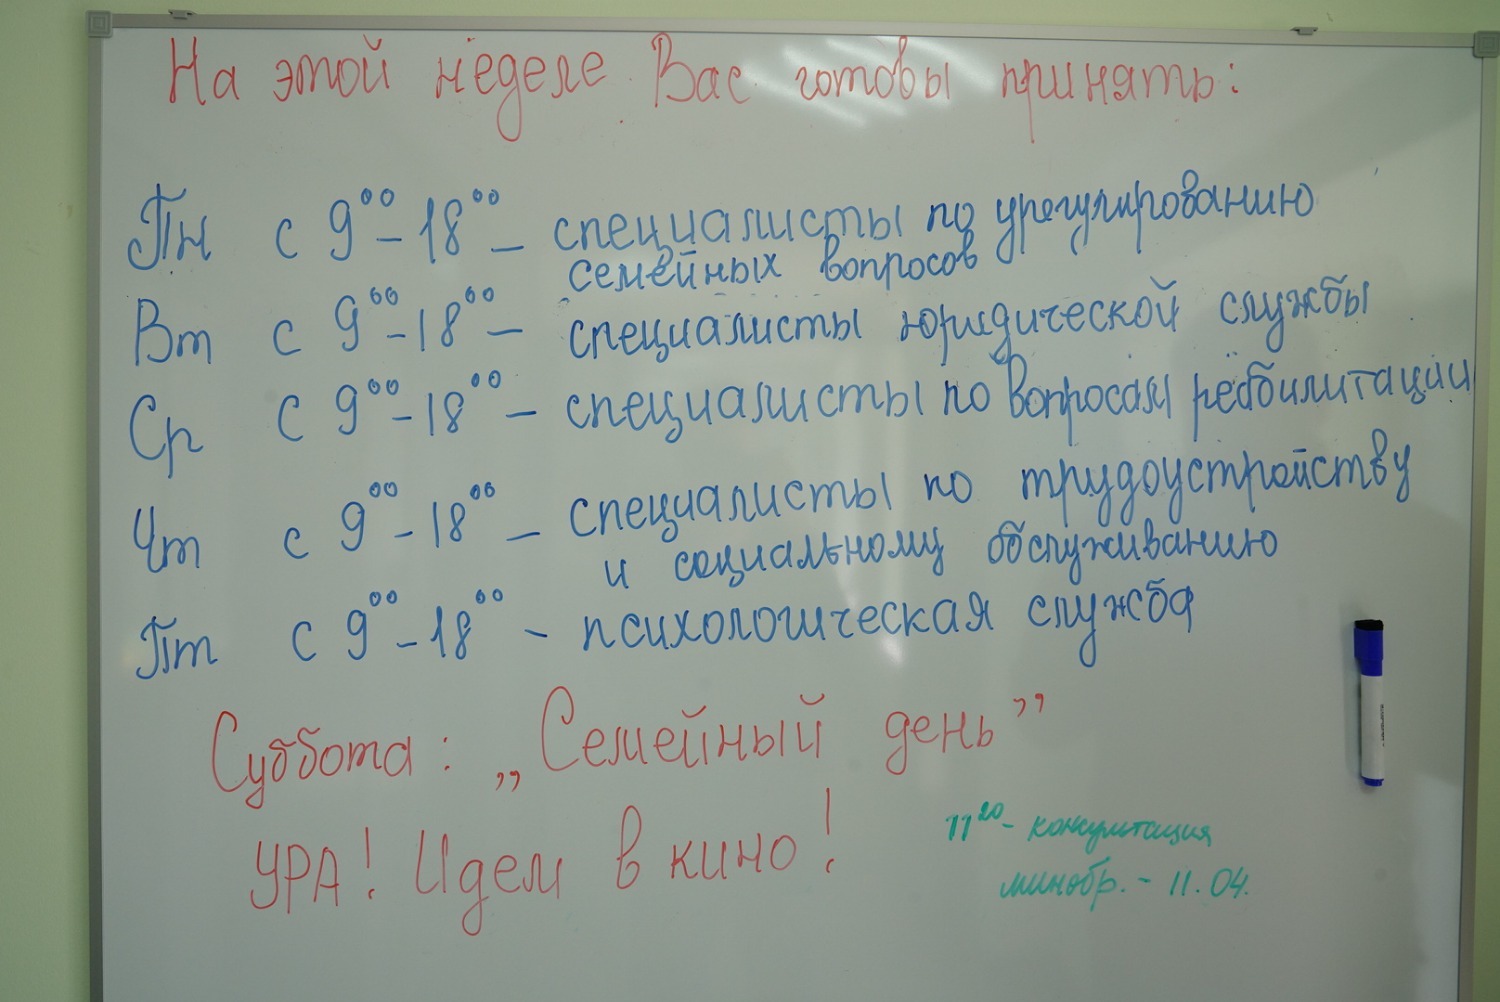 На этой неделе Вас готовы принять:
Пн с 9⁰⁰ - 18⁰⁰ - специалисты по урегулированию
семейных вопросов
Вт с 9⁰⁰ - 18⁰⁰ - специалисты юридической службы
Ср с 9⁰⁰ - 18⁰⁰ - специалисты по вопросам реабилитации
Чт с 9⁰⁰ - 18⁰⁰ - специалисты по трудоустройству
и социальному обслуживанию
Пт с 9⁰⁰ - 18⁰⁰ - психологическая служба
Суббота: „Семейный день”
УРА! Идем в кино!
11²⁰ - консультация
минобр. - 11.04.